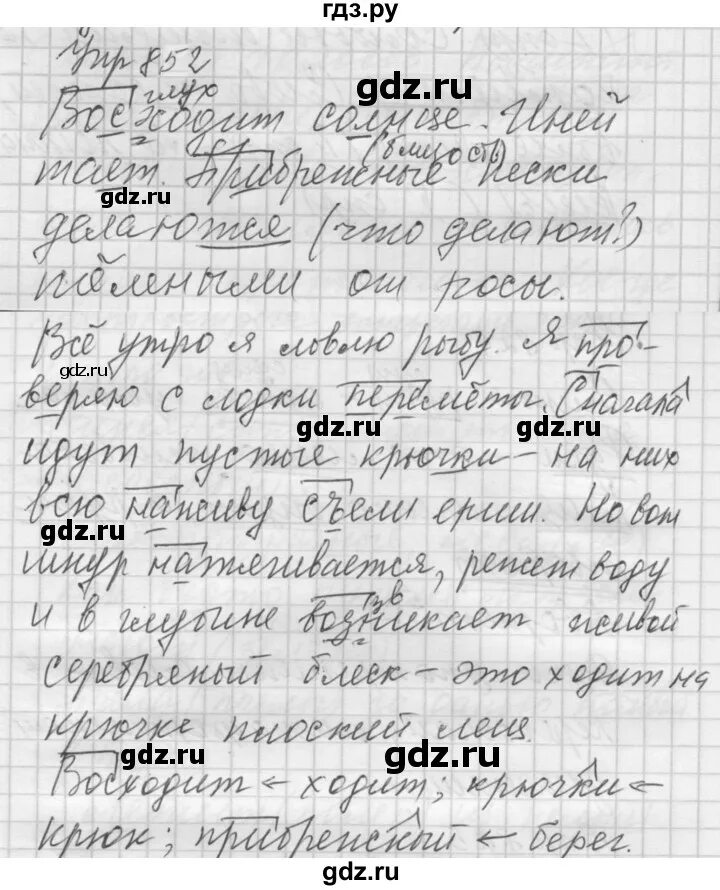 гдз.ру
Упр 852
глух
Восходит солнце. Иней
(близость)
тает. Прибрежные пески
делаются (что делают?)
тёмными от росы.
Всё утро я ловлю рыбу. Я про-
веряю с лодки перемёты. Сначала
идут пустые крючки – на них
всю наживу съели ерши. Но вот
шнур натягивается, режет воду
и в глубине возникает живой
серебряный блеск – это ходит на
крючке плоский лещ.
Восходит ← ходит; крючки ←
крюк; прибрежный ← берег.
gdz.ru
gdz.ru
gdz.ru
gdz.ru
gdz.ru
gdz.ru
gdz.ru
gdz.ru
gdz.ru
gdz.ru
gdz.ru
gdz.ru
gdz.ru